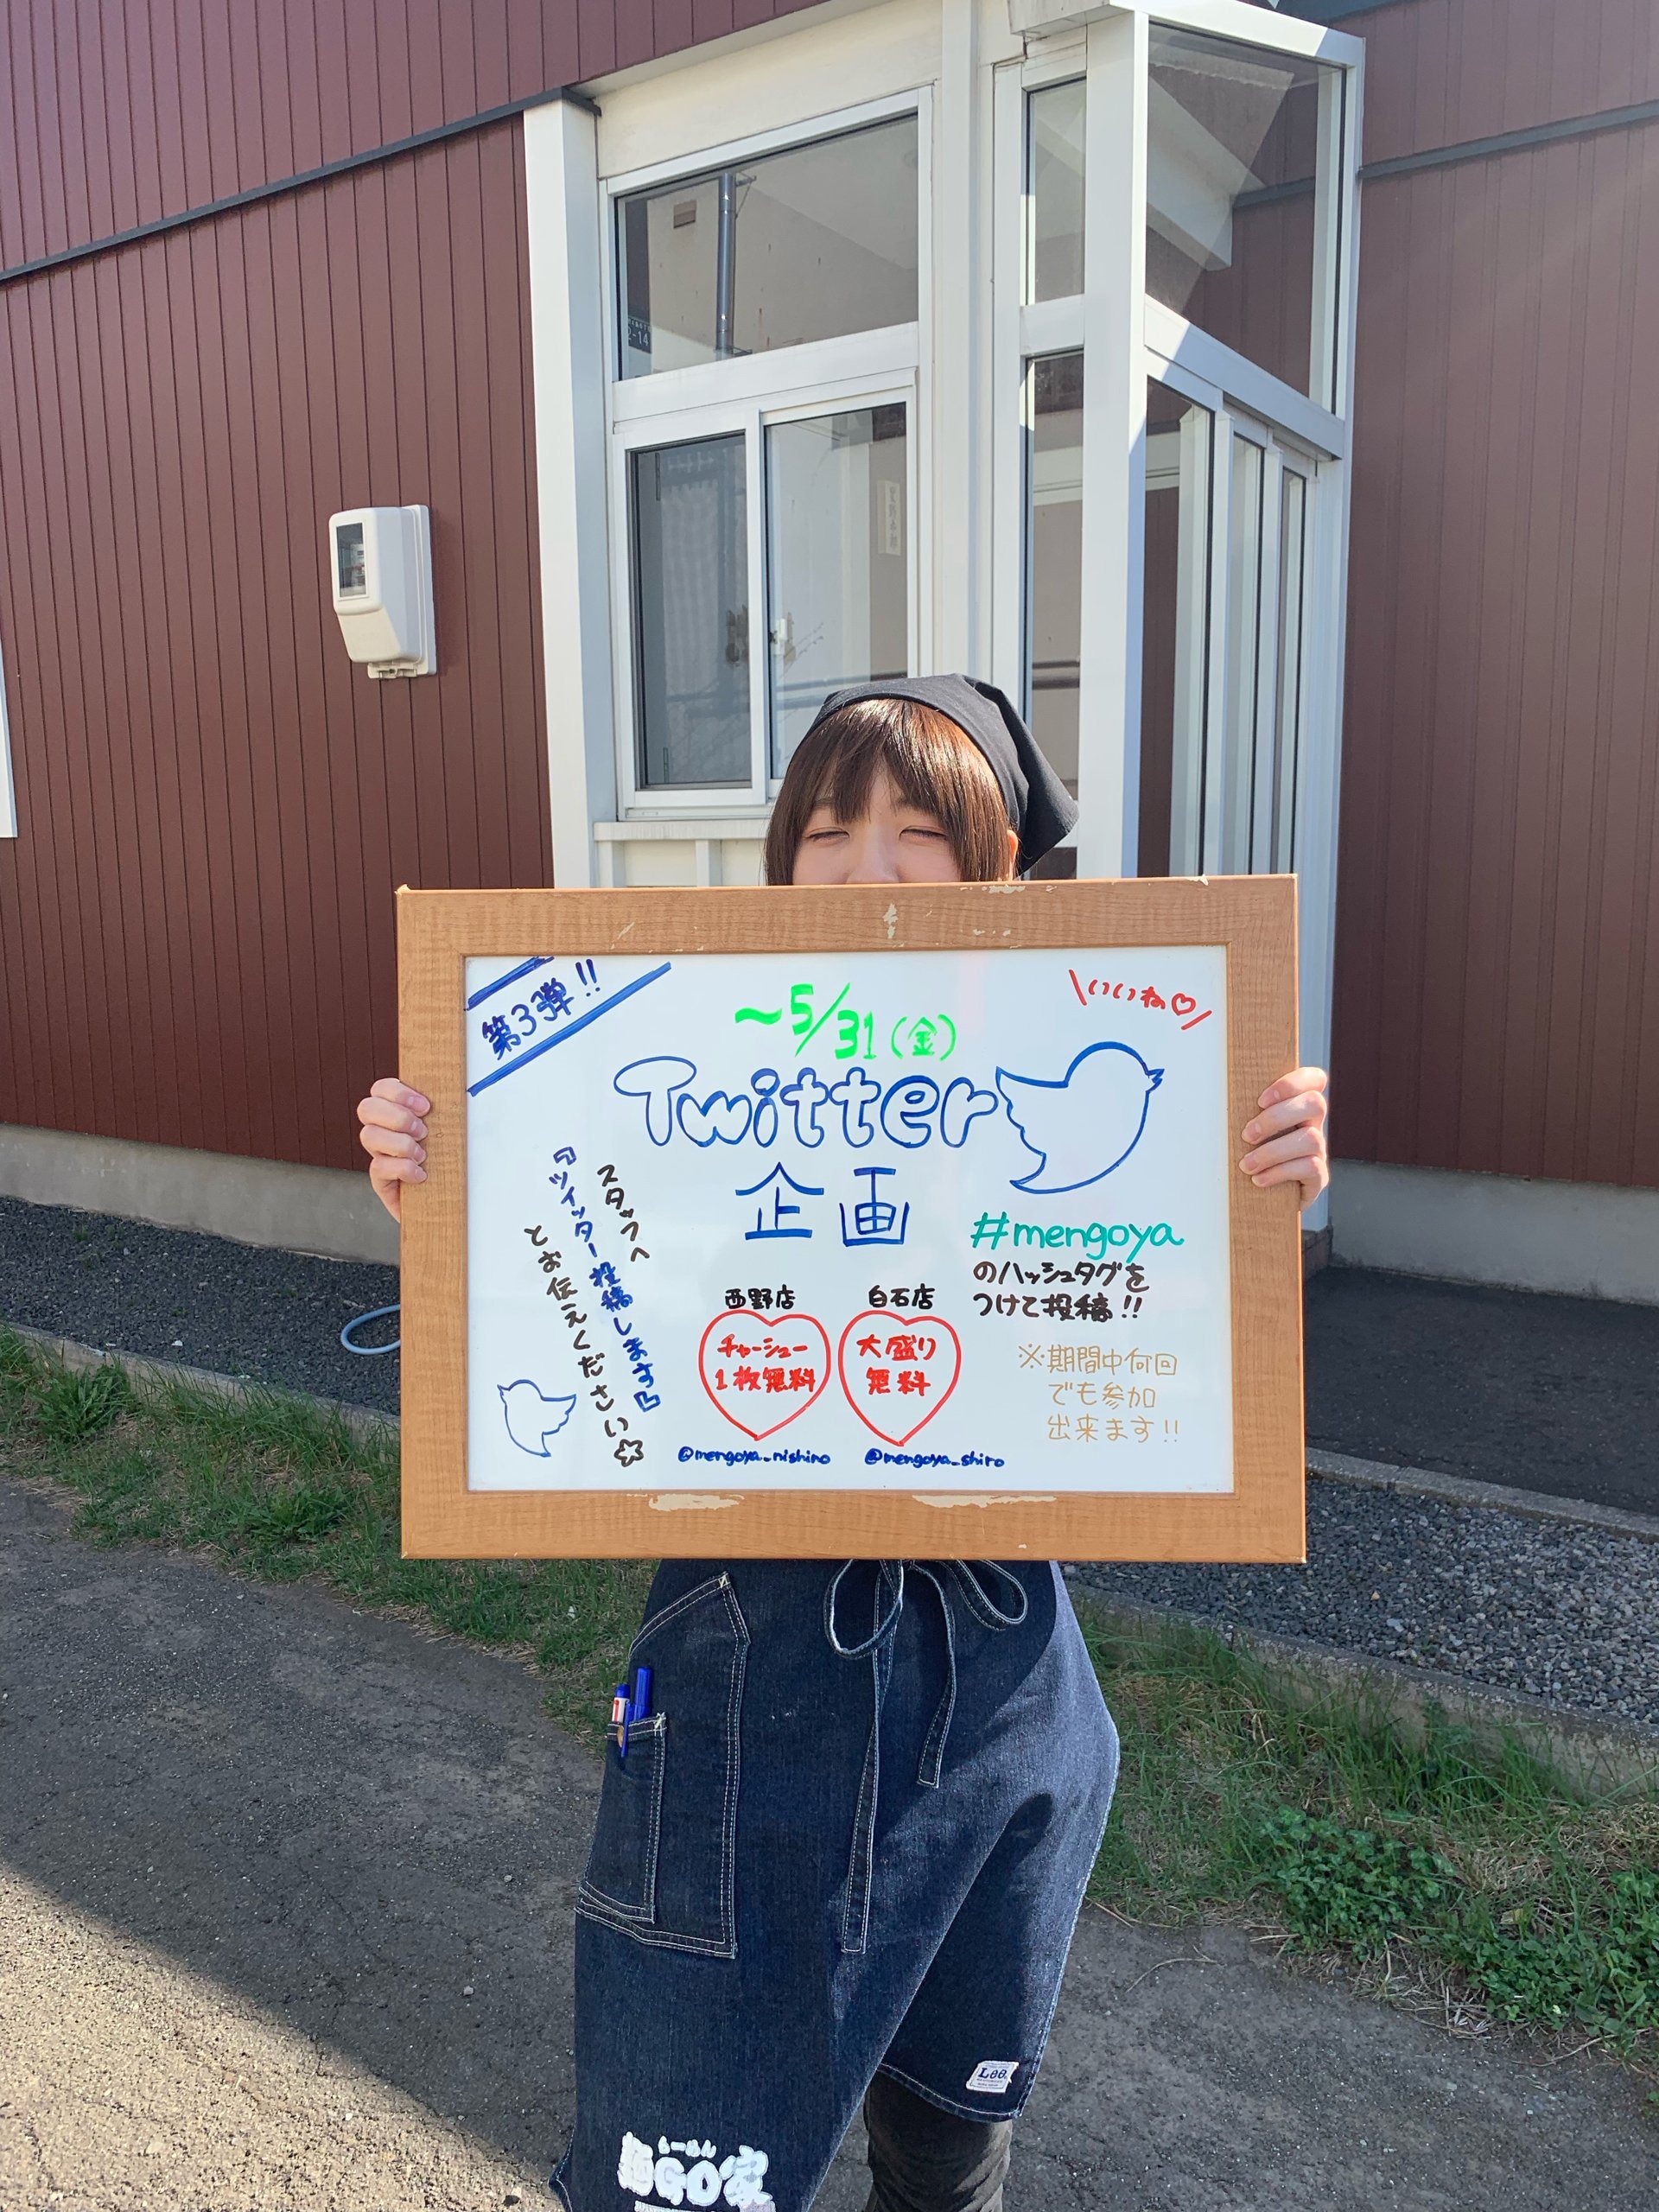 第3弾!!
~5/31(金)
\いいね♡/
Twitter
企画
スタッフへ
『ツイッター投稿します』
とお伝えください☆
#mengoya
のハッシュタグを
つけて投稿!!
※期間中何回
でも参加
出来ます!!
西野店
チャーシュー
1枚無料
@mengoya_nishino
白石店
大盛り
無料
@mengoya_shiro
Lee
らーめん
麺GO家